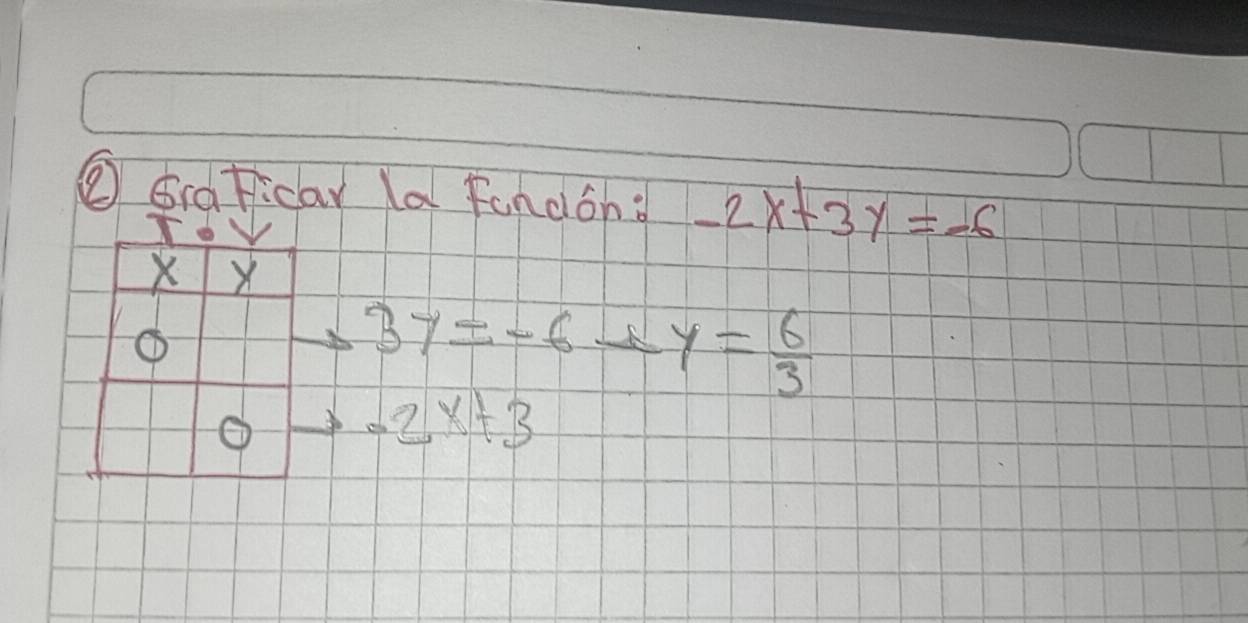 ② Graficar la Función: -2x+3y=-6
T.V
x y
0 → 3y=-6 → y = 6/3
0 → -2x+3